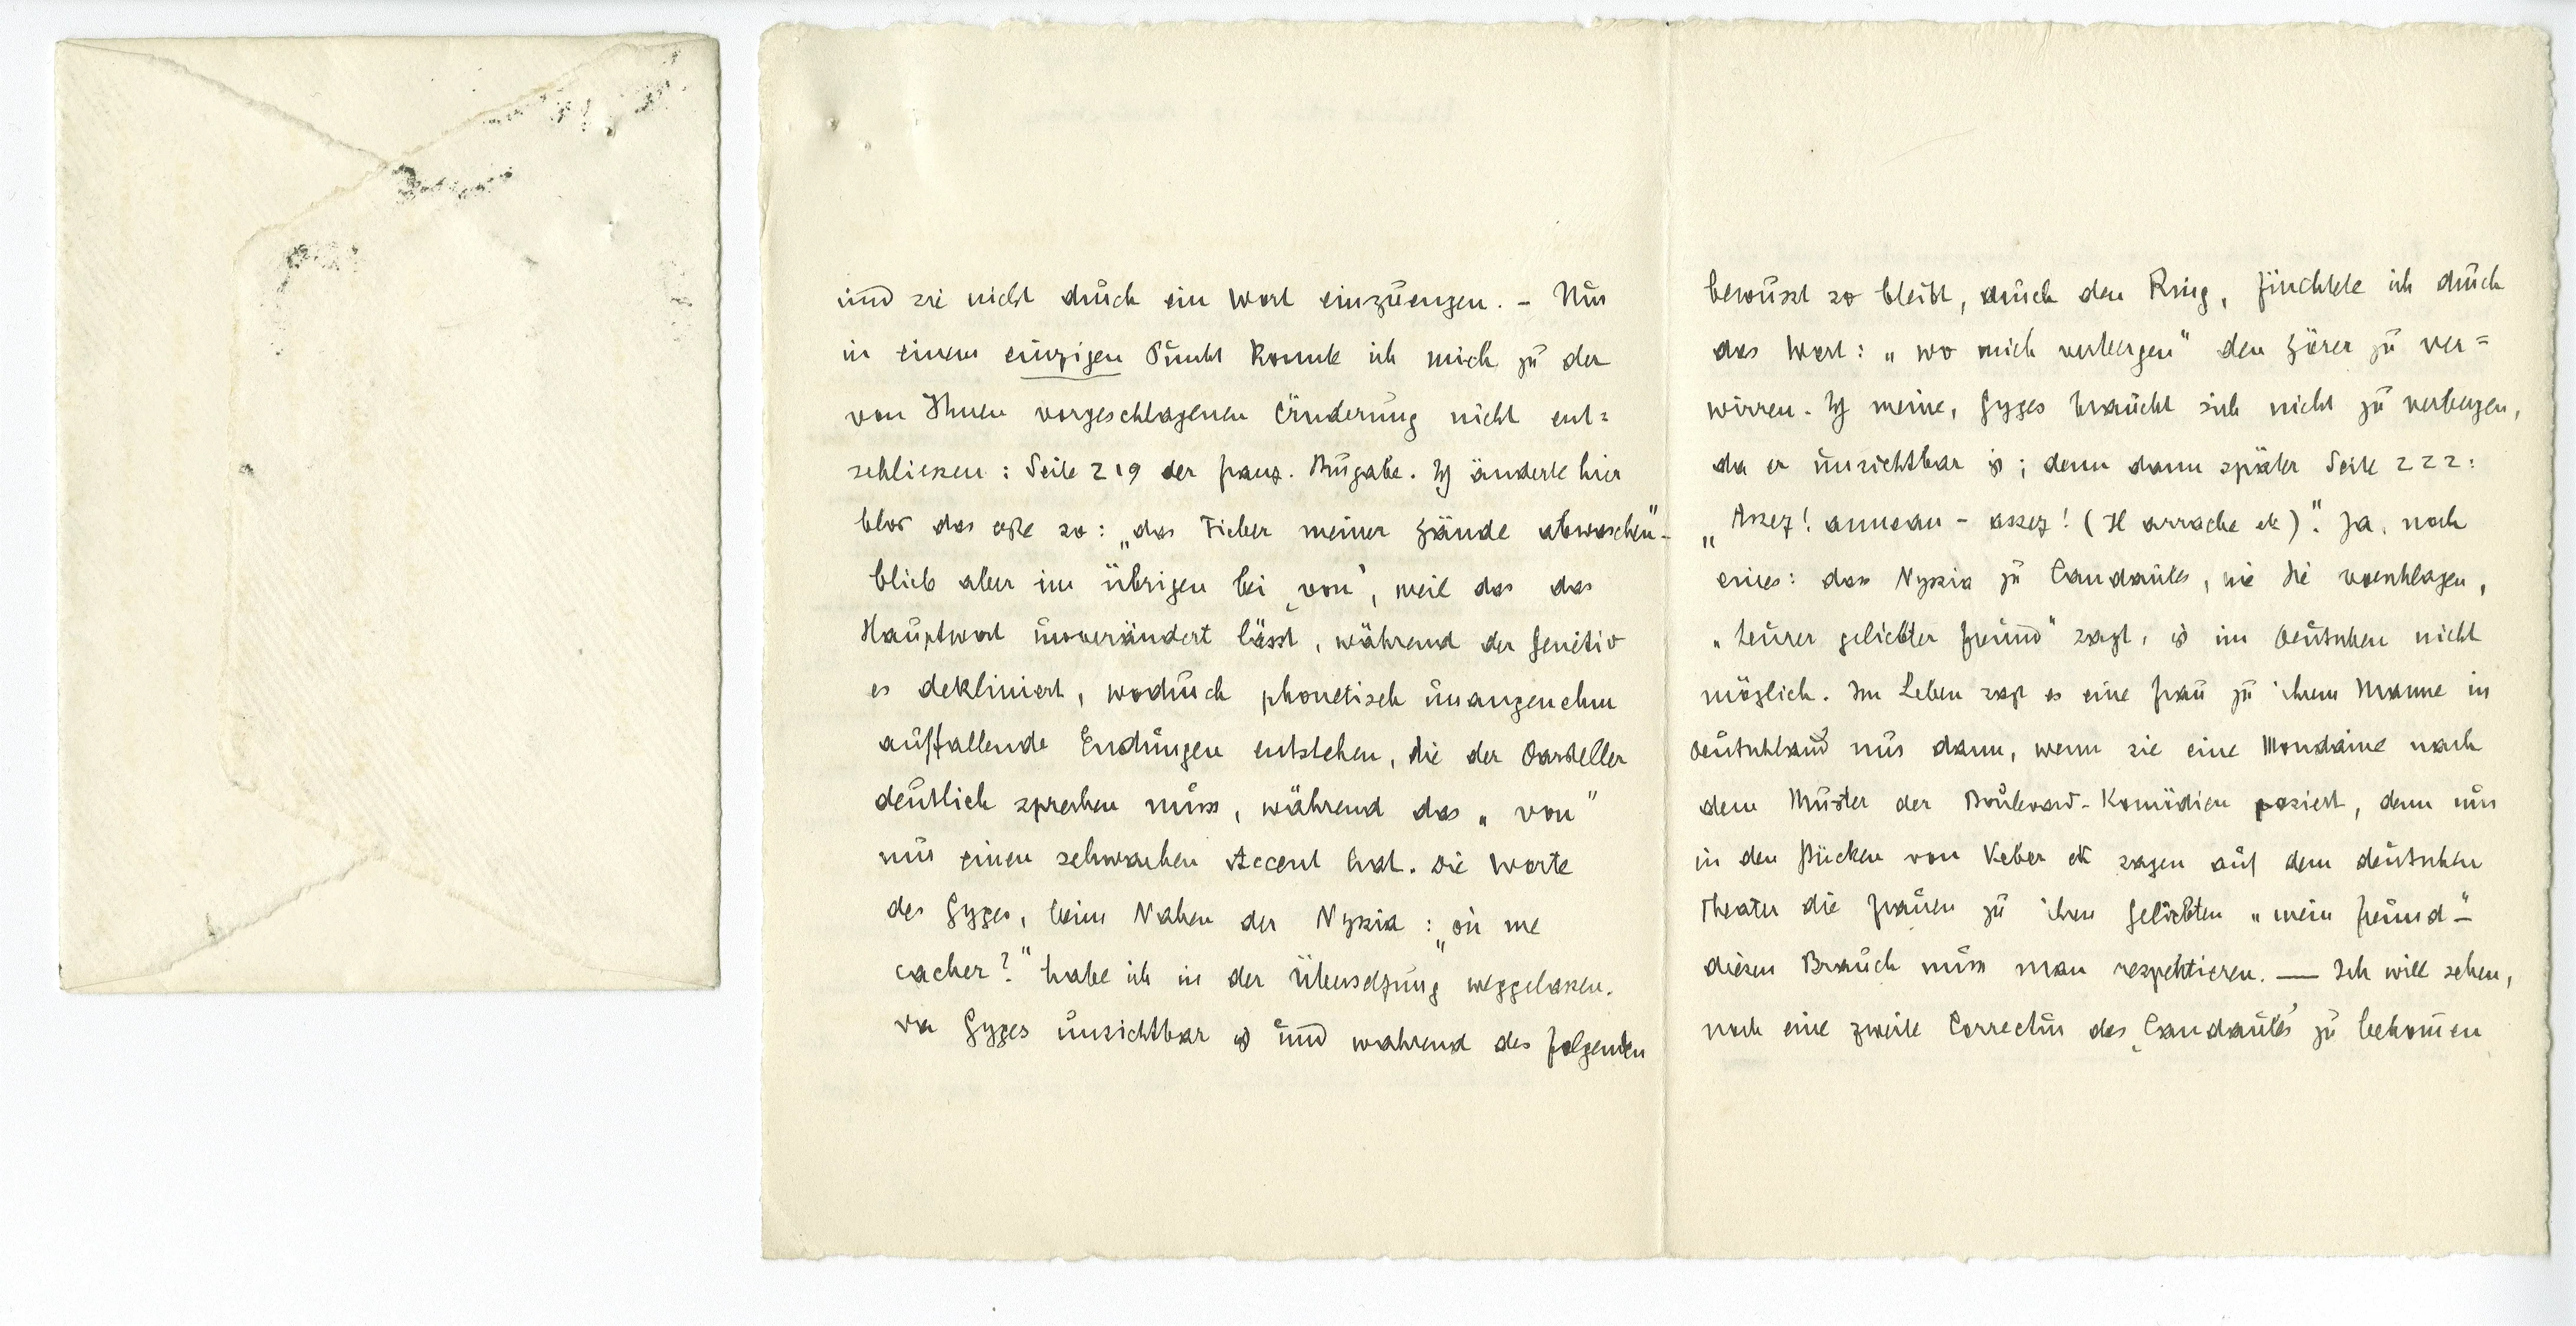 und sie nicht durch ein Wort einzuengen. – Nur
in einem einzigen Punkt konnte ich mich zu der
von Ihnen vorgeschlagenen Änderung nicht ent=
schliessen: Seite 219 der franz. Ausgabe. Ich änderte hier
blos das erste so: „das Fieber meiner Hände abwaschen“ –
blieb aber im übrigen bei ‚von‘, weil das das
Hauptwort unverändert lässt, während der Genetiv
es dekliniert, wodurch phonetisch unangenehm
auffallende Endungen entstehen, die der Darsteller
deutlich sprechen muss, während das „von“
nur einen schwachen Accent hat. Die Worte
des Gyges, beim Nahen der Nyssia: „où me
cacher?“ habe ich in der Übersetzung weggelassen.
Da Gyges unsichtbar ist und während des folgenden
bewusst so bleibt, durch den Ring, fürchtete ich durch
das Wort: „wo mich verbergen“ den Hörer zu ver=
wirren. Ich meine, Gyges braucht sich nicht zu verbergen,
da er unsichtbar ist; denn dann später Seite 222:
„Assez! anneau – assez! (Il arrache etc)“. Ja, noch
eines: dass Nyssia zu Candaules, wie Sie vorschlagen,
„teurer geliebter Freund“ sagt, ist im Deutschen nicht
möglich. Im Leben sagt es eine Frau zu ihrem Manne in
Deutschland nur dann, wenn sie eine Mondaine nach
dem Muster der Boulevard-Komödien posiert, denn nur
in den Stücken von Veber etc sagen auf dem deutschen
Theater die Frauen zu ihren Geliebten „mein Freund“ –
diesen Brauch muss man respektieren. — Ich will sehen,
noch eine zweite Correctur des ‚Candaules‘ zu bekommen